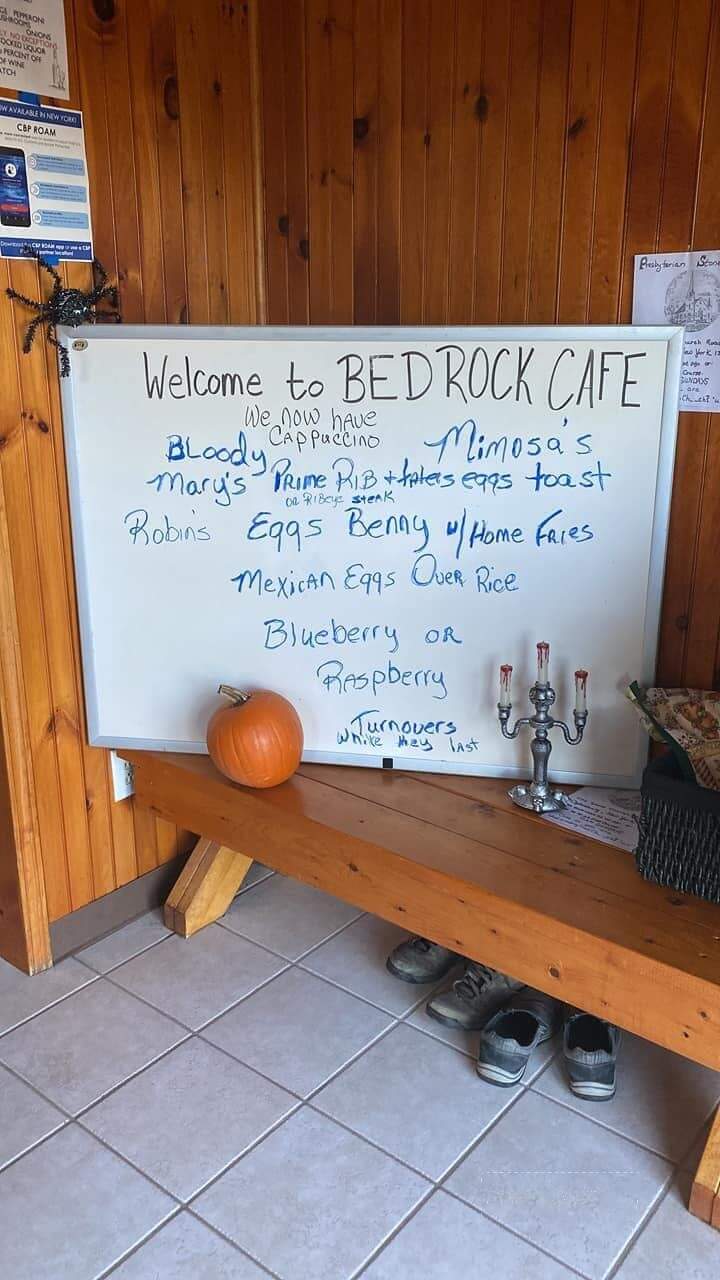 PEPPERONI
ONIONS
NO EXCEPTIONS
LIQUOR
PERCENT OFF
OF WINE
AVAILABLE IN NEW YORK!
CBP ROAM
CBP ROAM app or use a
partner location!
Presbyterian Stone
Welcome to BEDROCK CAFE
We now have
Cappuccino
Bloody Mimosa's
Mary's Prime Rib + taters eggs toast
or Ribeye steak
Robin's Eggs Benny w/ Home Fries
Mexican Eggs Over Rice
Blueberry or
Raspberry
Turnovers
While they last